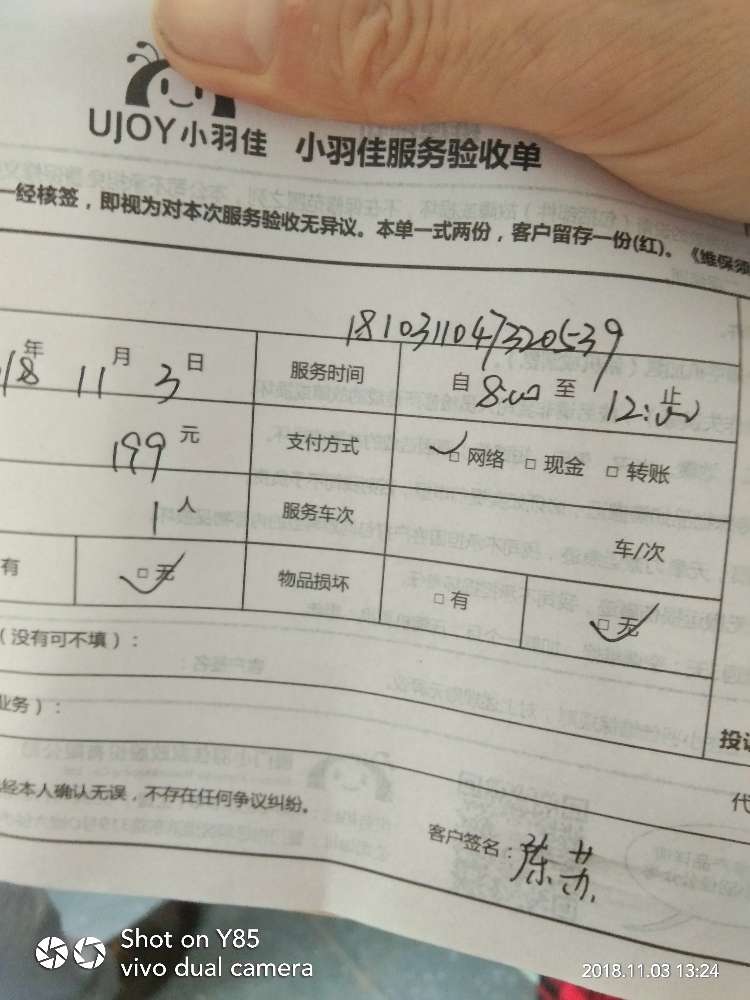 UJOY小羽佳 小羽佳服务验收单
一经核签，即视为对本次服务验收无异议。本单一式两份，客户留存一份(红)。《维保须
1810311047320539
18年 11月 3日 服务时间 自 8:00 至 12:00 止
199元 支付方式 □ 网络 □ 现金 □ 转账
1人 服务车次 车/次
有 □ 无 物品损坏 □ 有 □ 无
（没有可不填）：
业务）：
投诉
经本人确认无误，不存在任何争议纠纷。
代
客户签名：陈苏
Shot on Y85
vivo dual camera
2018.11.03 13:24